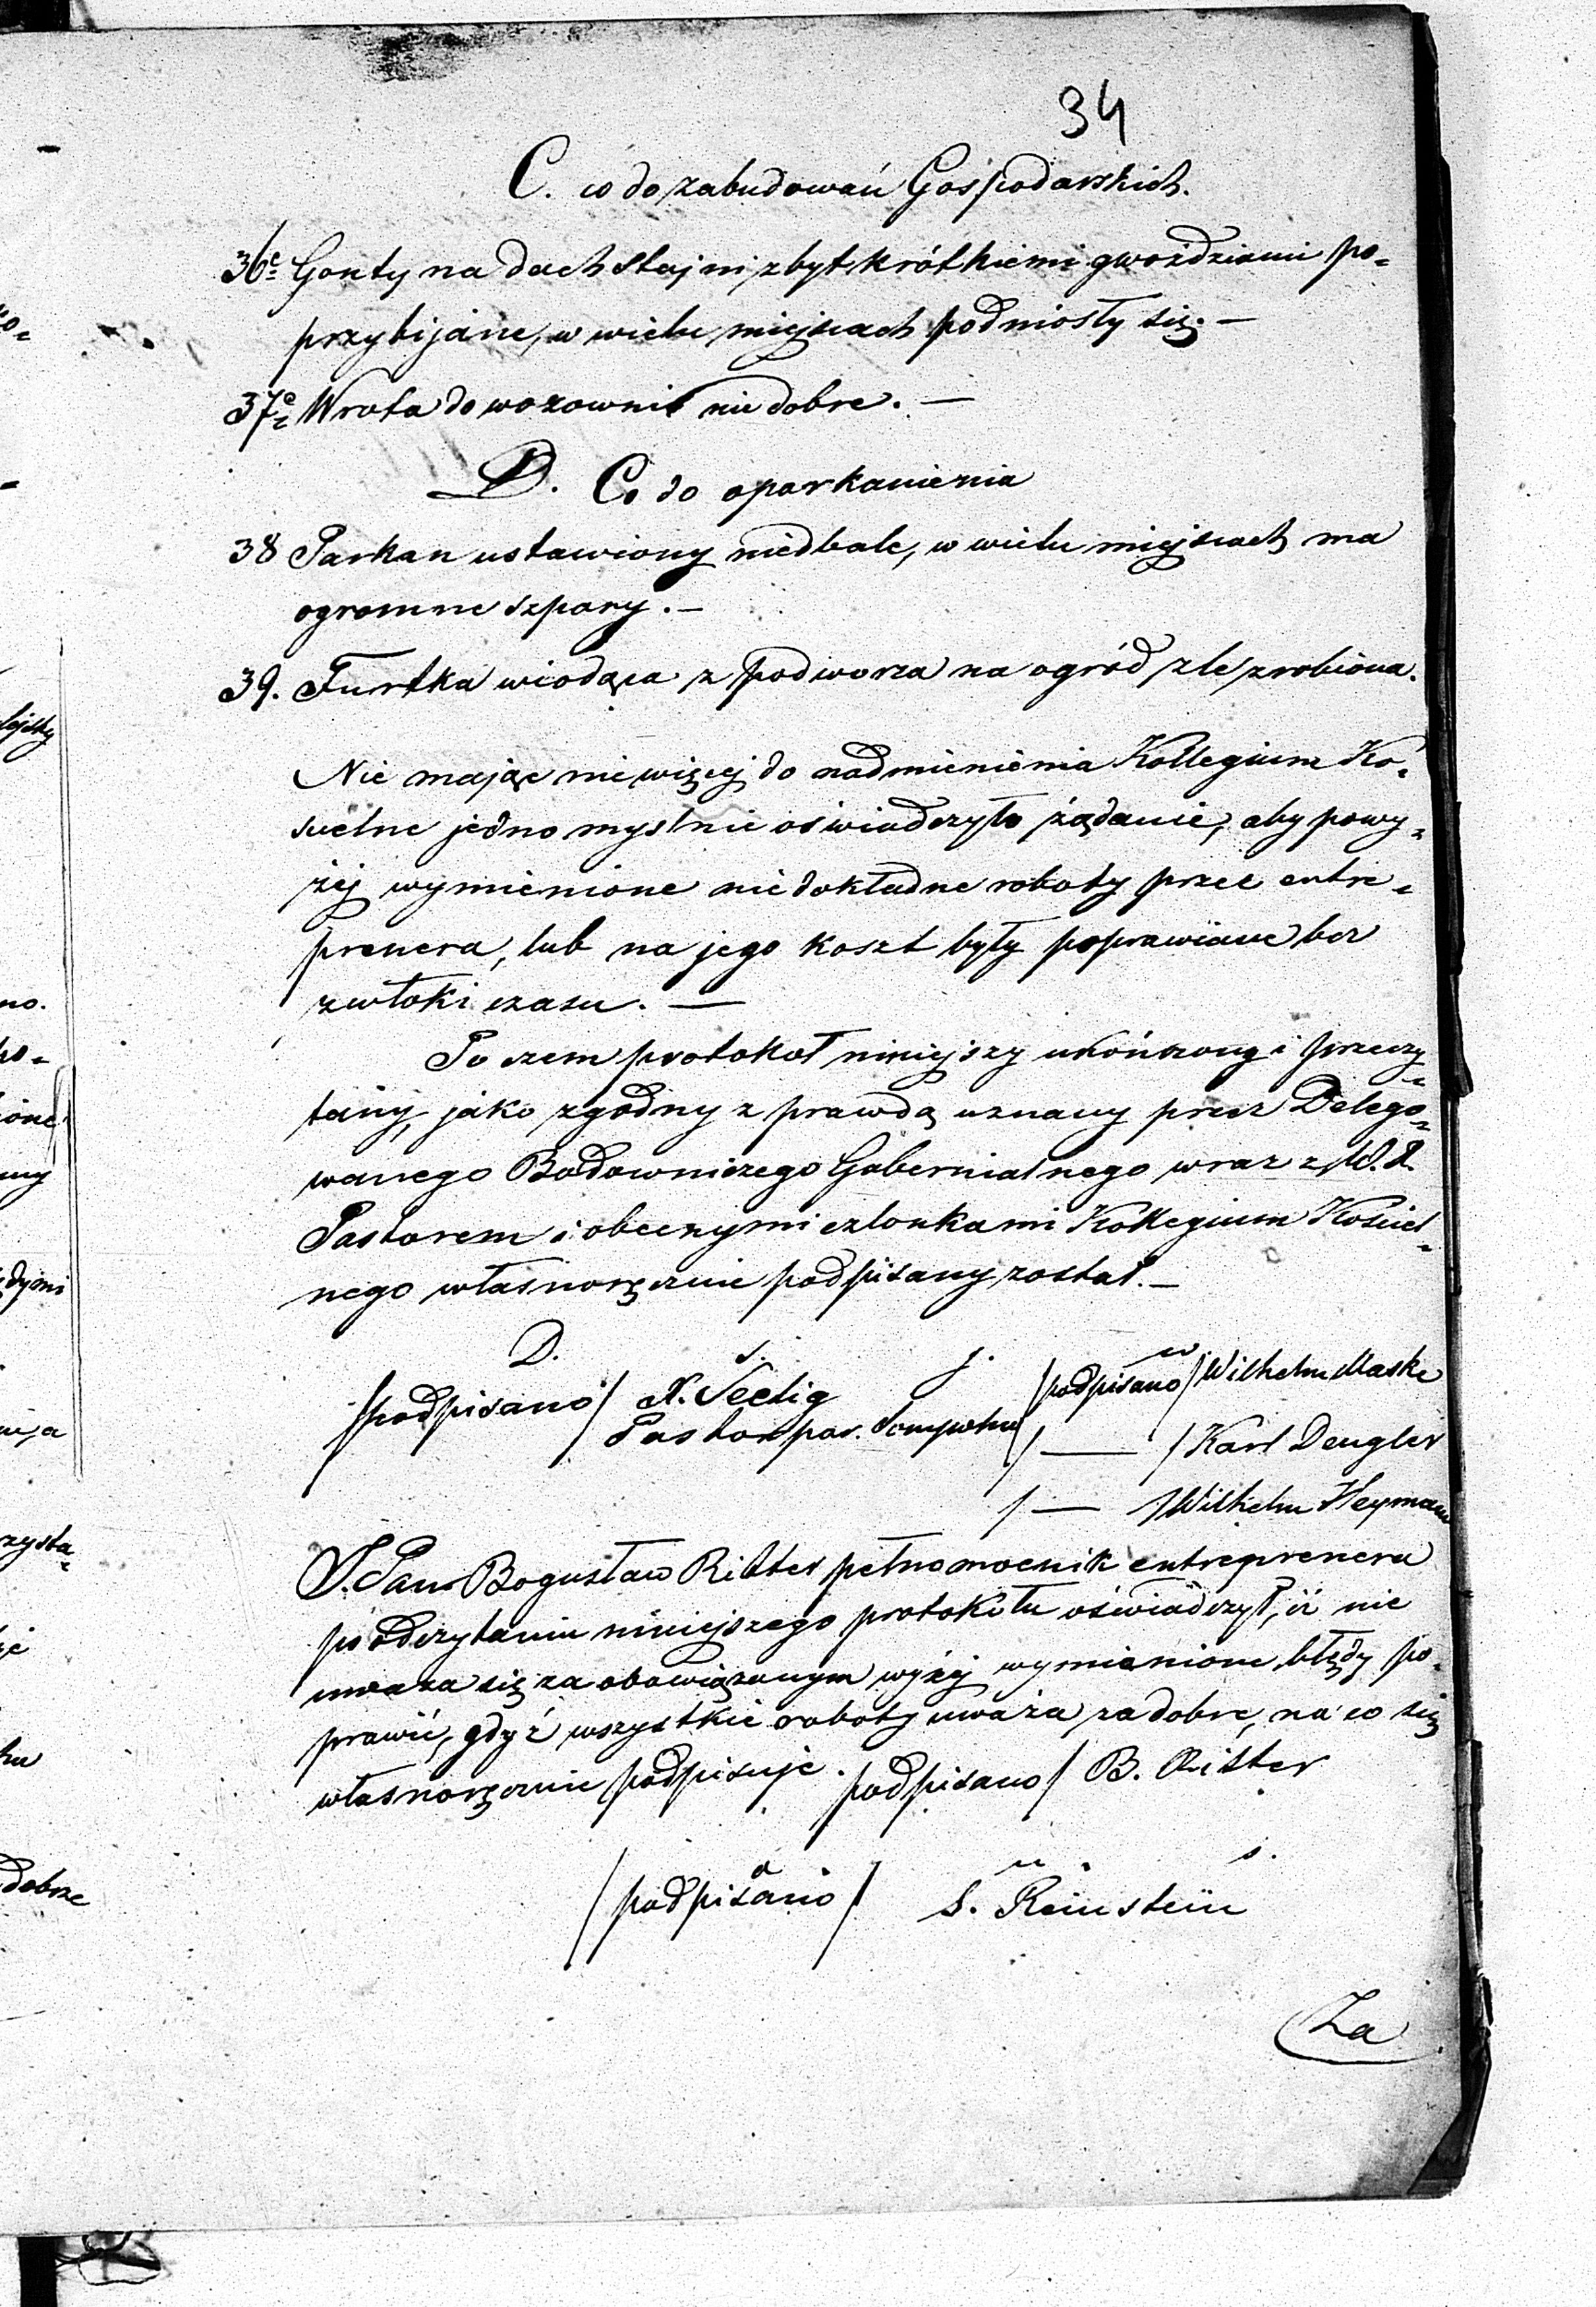 34
C. co do zabudowań Gospodarskich.
36e Gonty na dach stajni zbyt krótkiemi gwoździami po=
przybijane, w wielu miejscach podniosły się. —
37e Wrota do wozowni nie dobre. —
D. Co do oparkanienia
38 Parkan ustawiony niedbale, w wielu miejscach ma
ogromne szpary. —
39. Furtka wiodąca z podworza na ogród zle zrobiona.
Nie mając nic więcej do nadmienienia Kollegium Ko=
scielne jednomyslnie oświadczyło żądanie, aby powy=
żej wymienione niedokładne roboty przez entre=
prenera, lub na jego koszt były poprawiane bez
zwłoki czasu. —
Po czem protokoł niniejszy ukończony i przeczy=
tany, jako zgodny z prawdą uznany przez Delego=
wanego Budowniczego Gubernialnego wraz z W.
Pastorem i obecnymi członkami Kollegium Kościel=
nego własnoręcznie podpisany został. —
D. s. j. w
/podpisano/ /podpisano/ Wilhelm Maske
Pastor par. Sompolno /—/ Karl Dengler
/—/ Wilhelm Heyman
Pan Bogusław Ritter pełnomocnik entreprenera
po odczytaniu niniejszego protokołu oświadczył, iż nie
uważa się za obowiązanym wyżej wymienione błędy po=
prawić, gdyż wszystkie roboty uważa za dobre, na co się
własnoręcznie podpisuje. podpisano/ B. Ritter
/podpisano/ S. Reinstein
Za
lejsky
no.
dymi
zysta=
dobrze